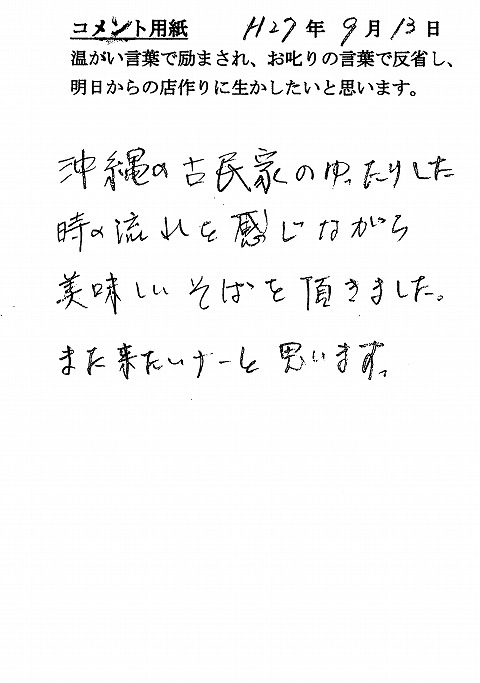 コメント用紙 H27年9月13日
温がい言葉で励まされ、お叱りの言葉で反省し、
明日からの店作りに生かしたいと思います。
沖縄の古民家のゆったりした
時の流れを感じながら
美味しいそばを頂きました。
また来たいナーと思います。